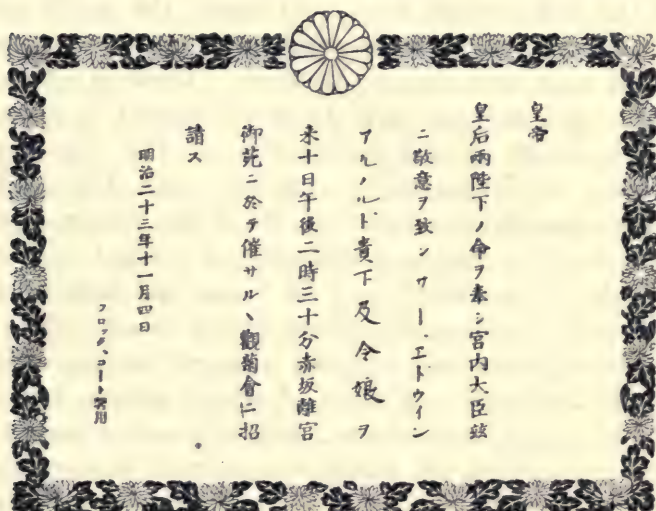 皇帝
皇后兩陛下ノ命ヲ奉シ宮内大臣玆
ニ敬意ヲ致シサー、エドウイン
アルノルド貴下及令娘ヲ
来十日午後二時三十分赤坂離宮
御苑ニ於テ催サルヽ觀菊會ニ招
請ス
明治二十三年十一月四日
フロックコート着用